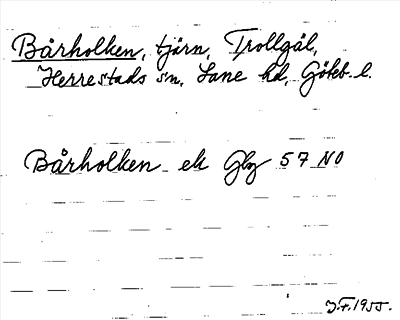 Bårholken, tjärn, Trollgål,
Herrestads sn, Lane hd, Göteb. l.
Bårholken ek Gbg 57 NO
J.F. 1955.